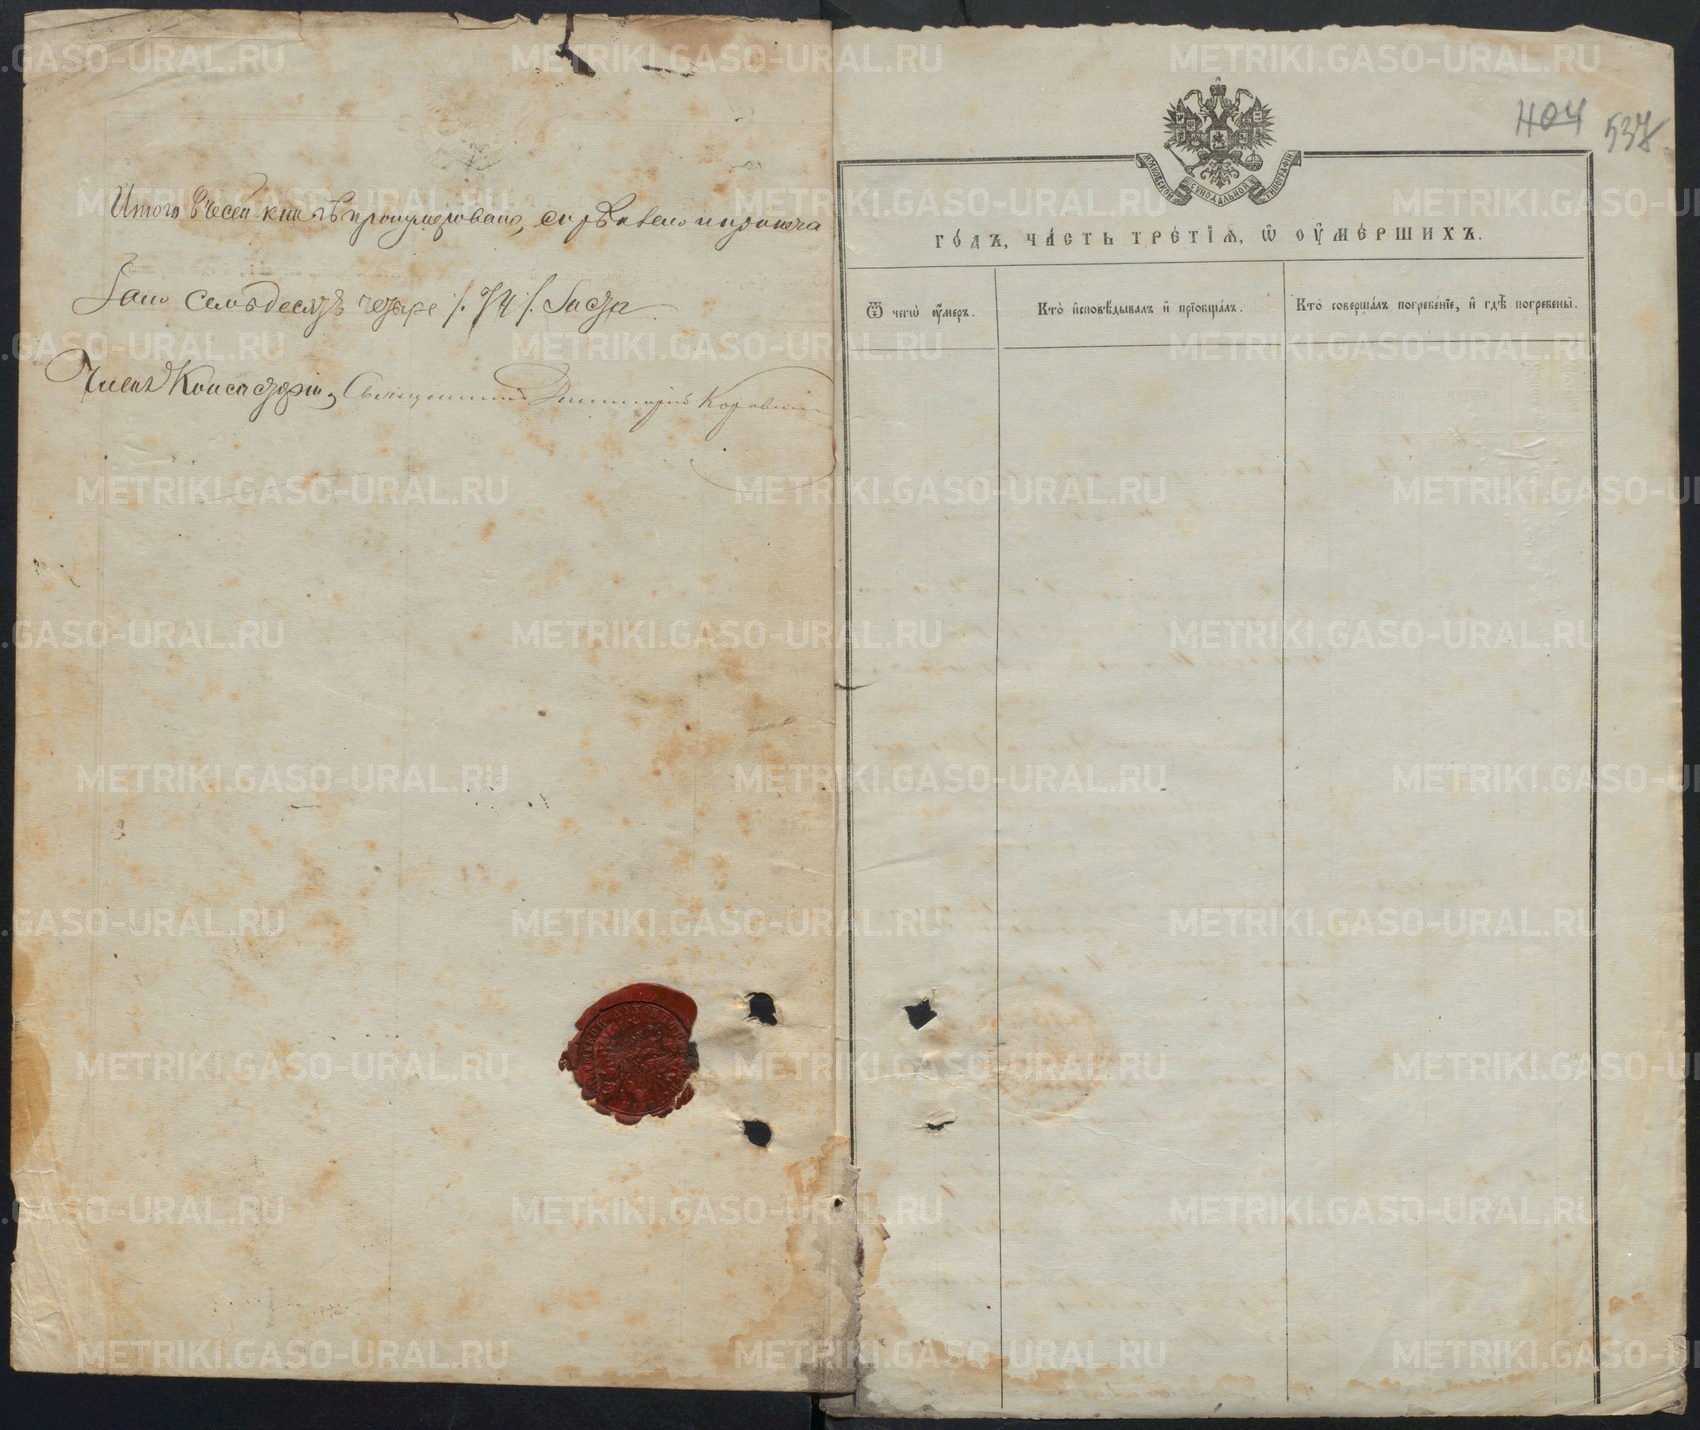 Итого в сей книгѣ пронумеровано, скрѣплено и припеча
тано семьдесятъ четыре /. 74 /. листа.
Членъ Консисторіи, Священникъ Димитрій Коровинъ
404 537
МОСКОВСКОЙ СѴНОДАЛЬНОЙ ТИПОГРАФІИ
ГО́ДЪ, ЧА́СТЬ ТРЕ́ТІѦ, Ѽ ОУ҆МЕ́РШИХЪ.
Ѿ чегѡ̀ оу҆́меръ.
Кто̀ и҆сповѣ́дывалъ и҆ прїобща́лъ.
Кто̀ соверша́лъ погребе́нїе, и҆ гдѣ̀ погребены̀.
METRIKI.GASO-URAL.RU